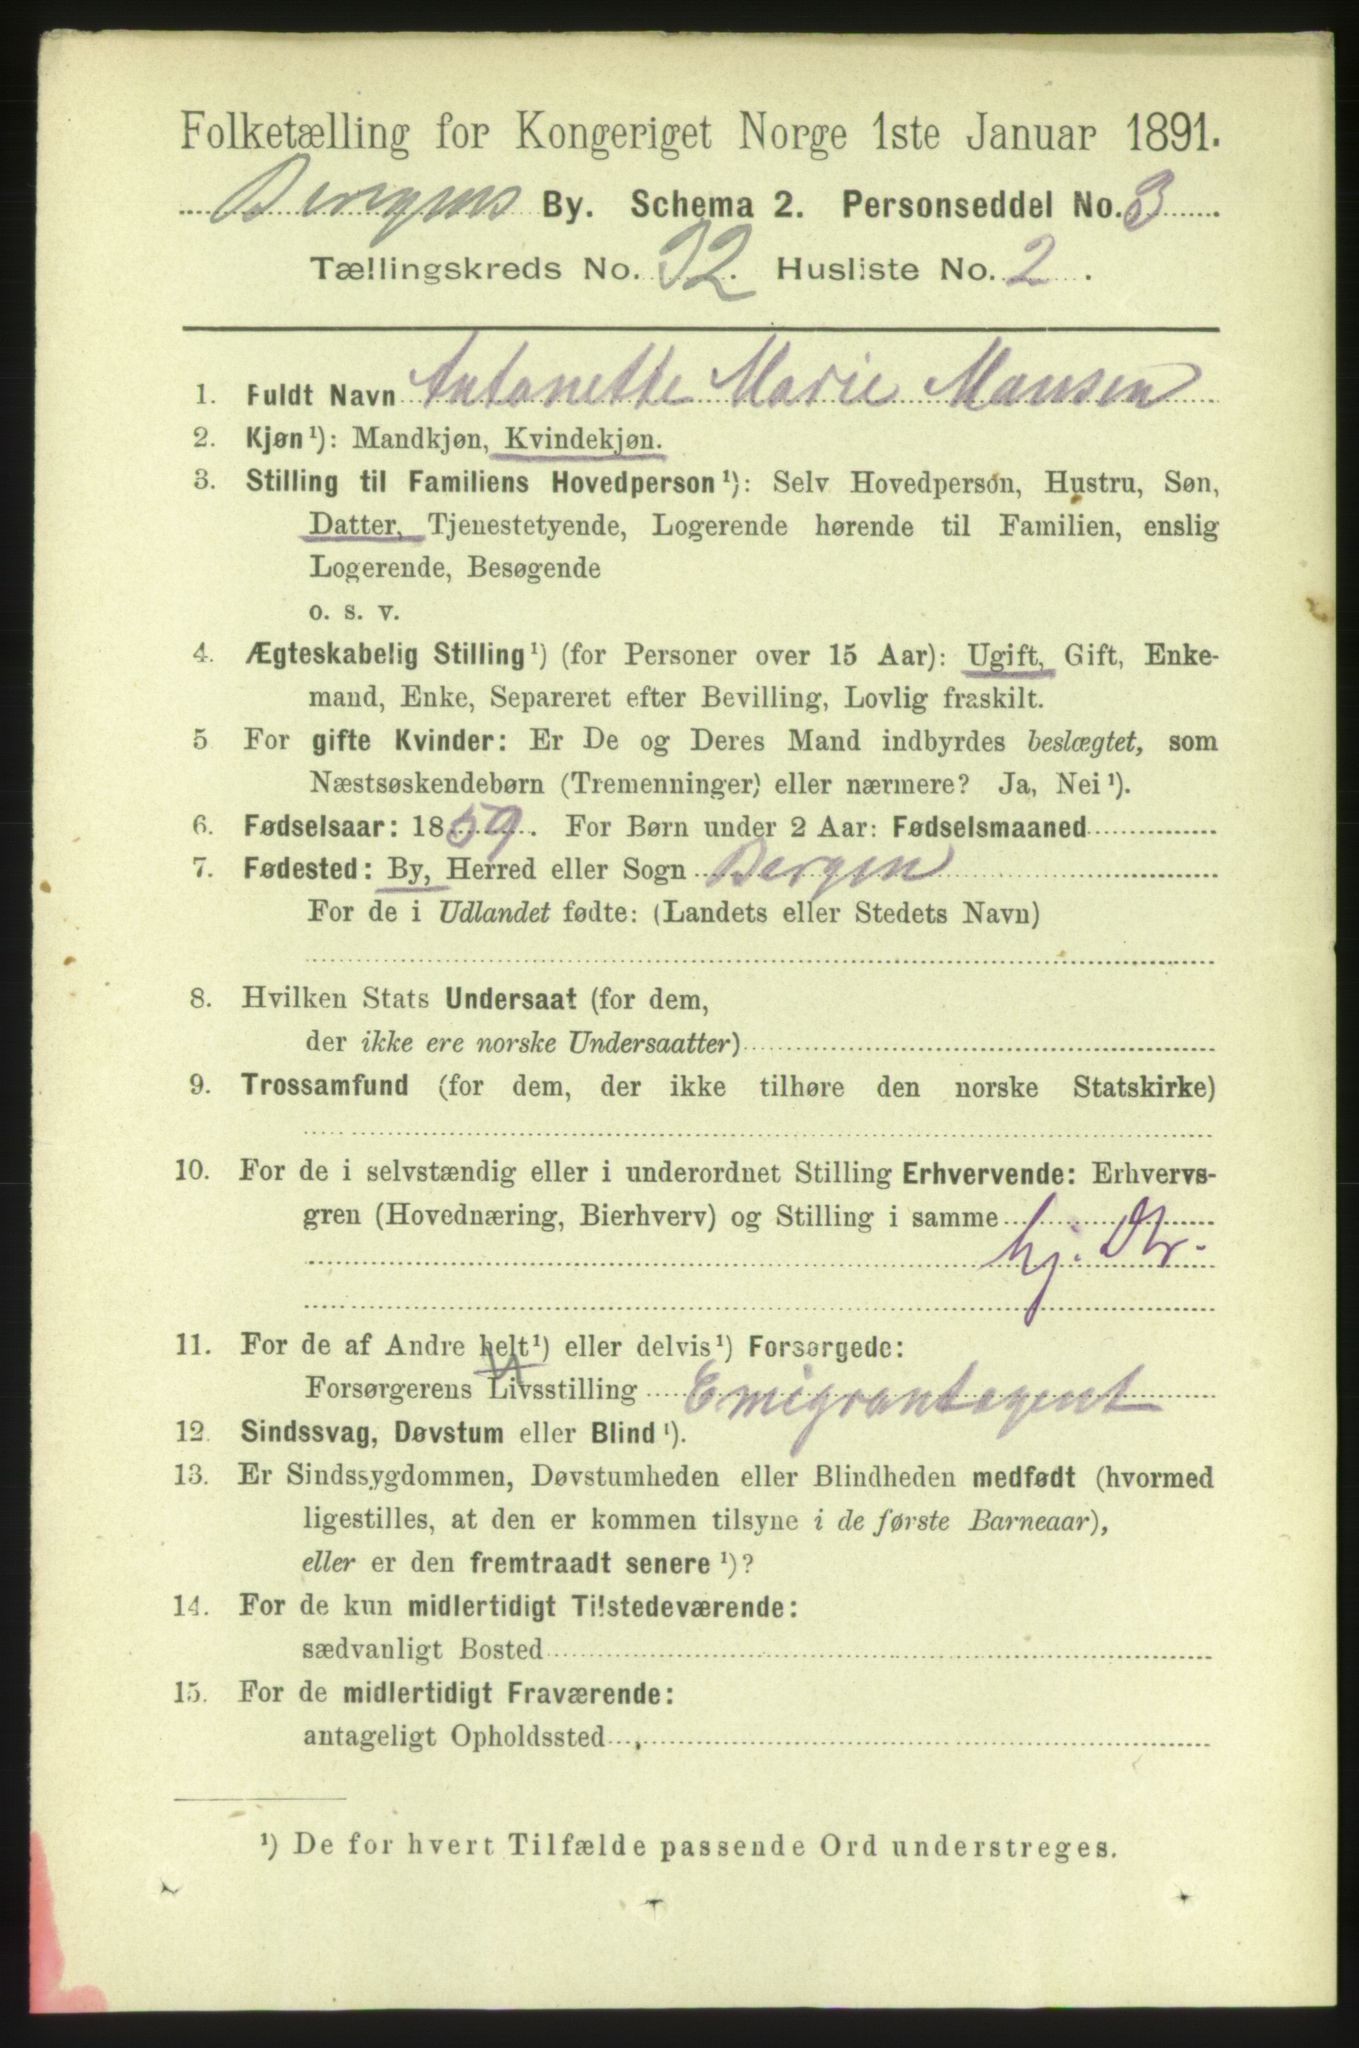 Folketælling for Kongeriget Norge 1ste Januar 1891.
Bergens By. Schema 2. Personseddel No. 3
Tællingskreds No. 32. Husliste No. 2.
1. Fuldt Navn Antonette Marie Monsen
2. Kjøn ¹): Mandkjøn, Kvindekjøn.
3. Stilling til Familiens Hovedperson ¹): Selv Hovedperson, Hustru, Søn,
Datter, Tjenestetyende, Logerende hørende til Familien, enslig
Logerende, Besøgende
o. s. v.
4. Ægteskabelig Stilling ¹) (for Personer over 15 Aar): Ugift, Gift, Enke-
mand, Enke, Separeret efter Bevilling, Lovlig fraskilt.
5 For gifte Kvinder: Er De og Deres Mand indbyrdes beslægtet, som
Næstsøskendebørn (Tremenninger) eller nærmere? Ja, Nei ¹).
6. Fødselsaar: 1859. For Børn under 2 Aar: Fødselsmaaned
7. Fødested: By, Herred eller Sogn Bergen
For de i Udlandet fødte: (Landets eller Stedets Navn)
8. Hvilken Stats Undersaat (for dem,
der ikke ere norske Undersaatter)
9. Trossamfund (for dem, der ikke tilhøre den norske Statskirke)
10. For de i selvstændig eller i underordnet Stilling Erhvervende: Erhvervs-
gren (Hovednæring, Bierhverv) og Stilling i samme
hj. Dtr.
11. For de af Andre helt ¹) eller delvis ¹) Forsørgede:
Forsørgerens Livsstilling Emigrantagent
12. Sindssvag, Døvstum eller Blind ¹).
13. Er Sindssygdommen, Døvstumheden eller Blindheden medfødt (hvormed
ligestilles, at den er kommen tilsyne i de første Barneaar),
eller er den fremtraadt senere ¹)?
14. For de kun midlertidigt Tilstedeværende:
sædvanligt Bosted
15. For de midlertidigt Fraværende:
antageligt Opholdssted
¹) De for hvert Tilfælde passende Ord understreges.